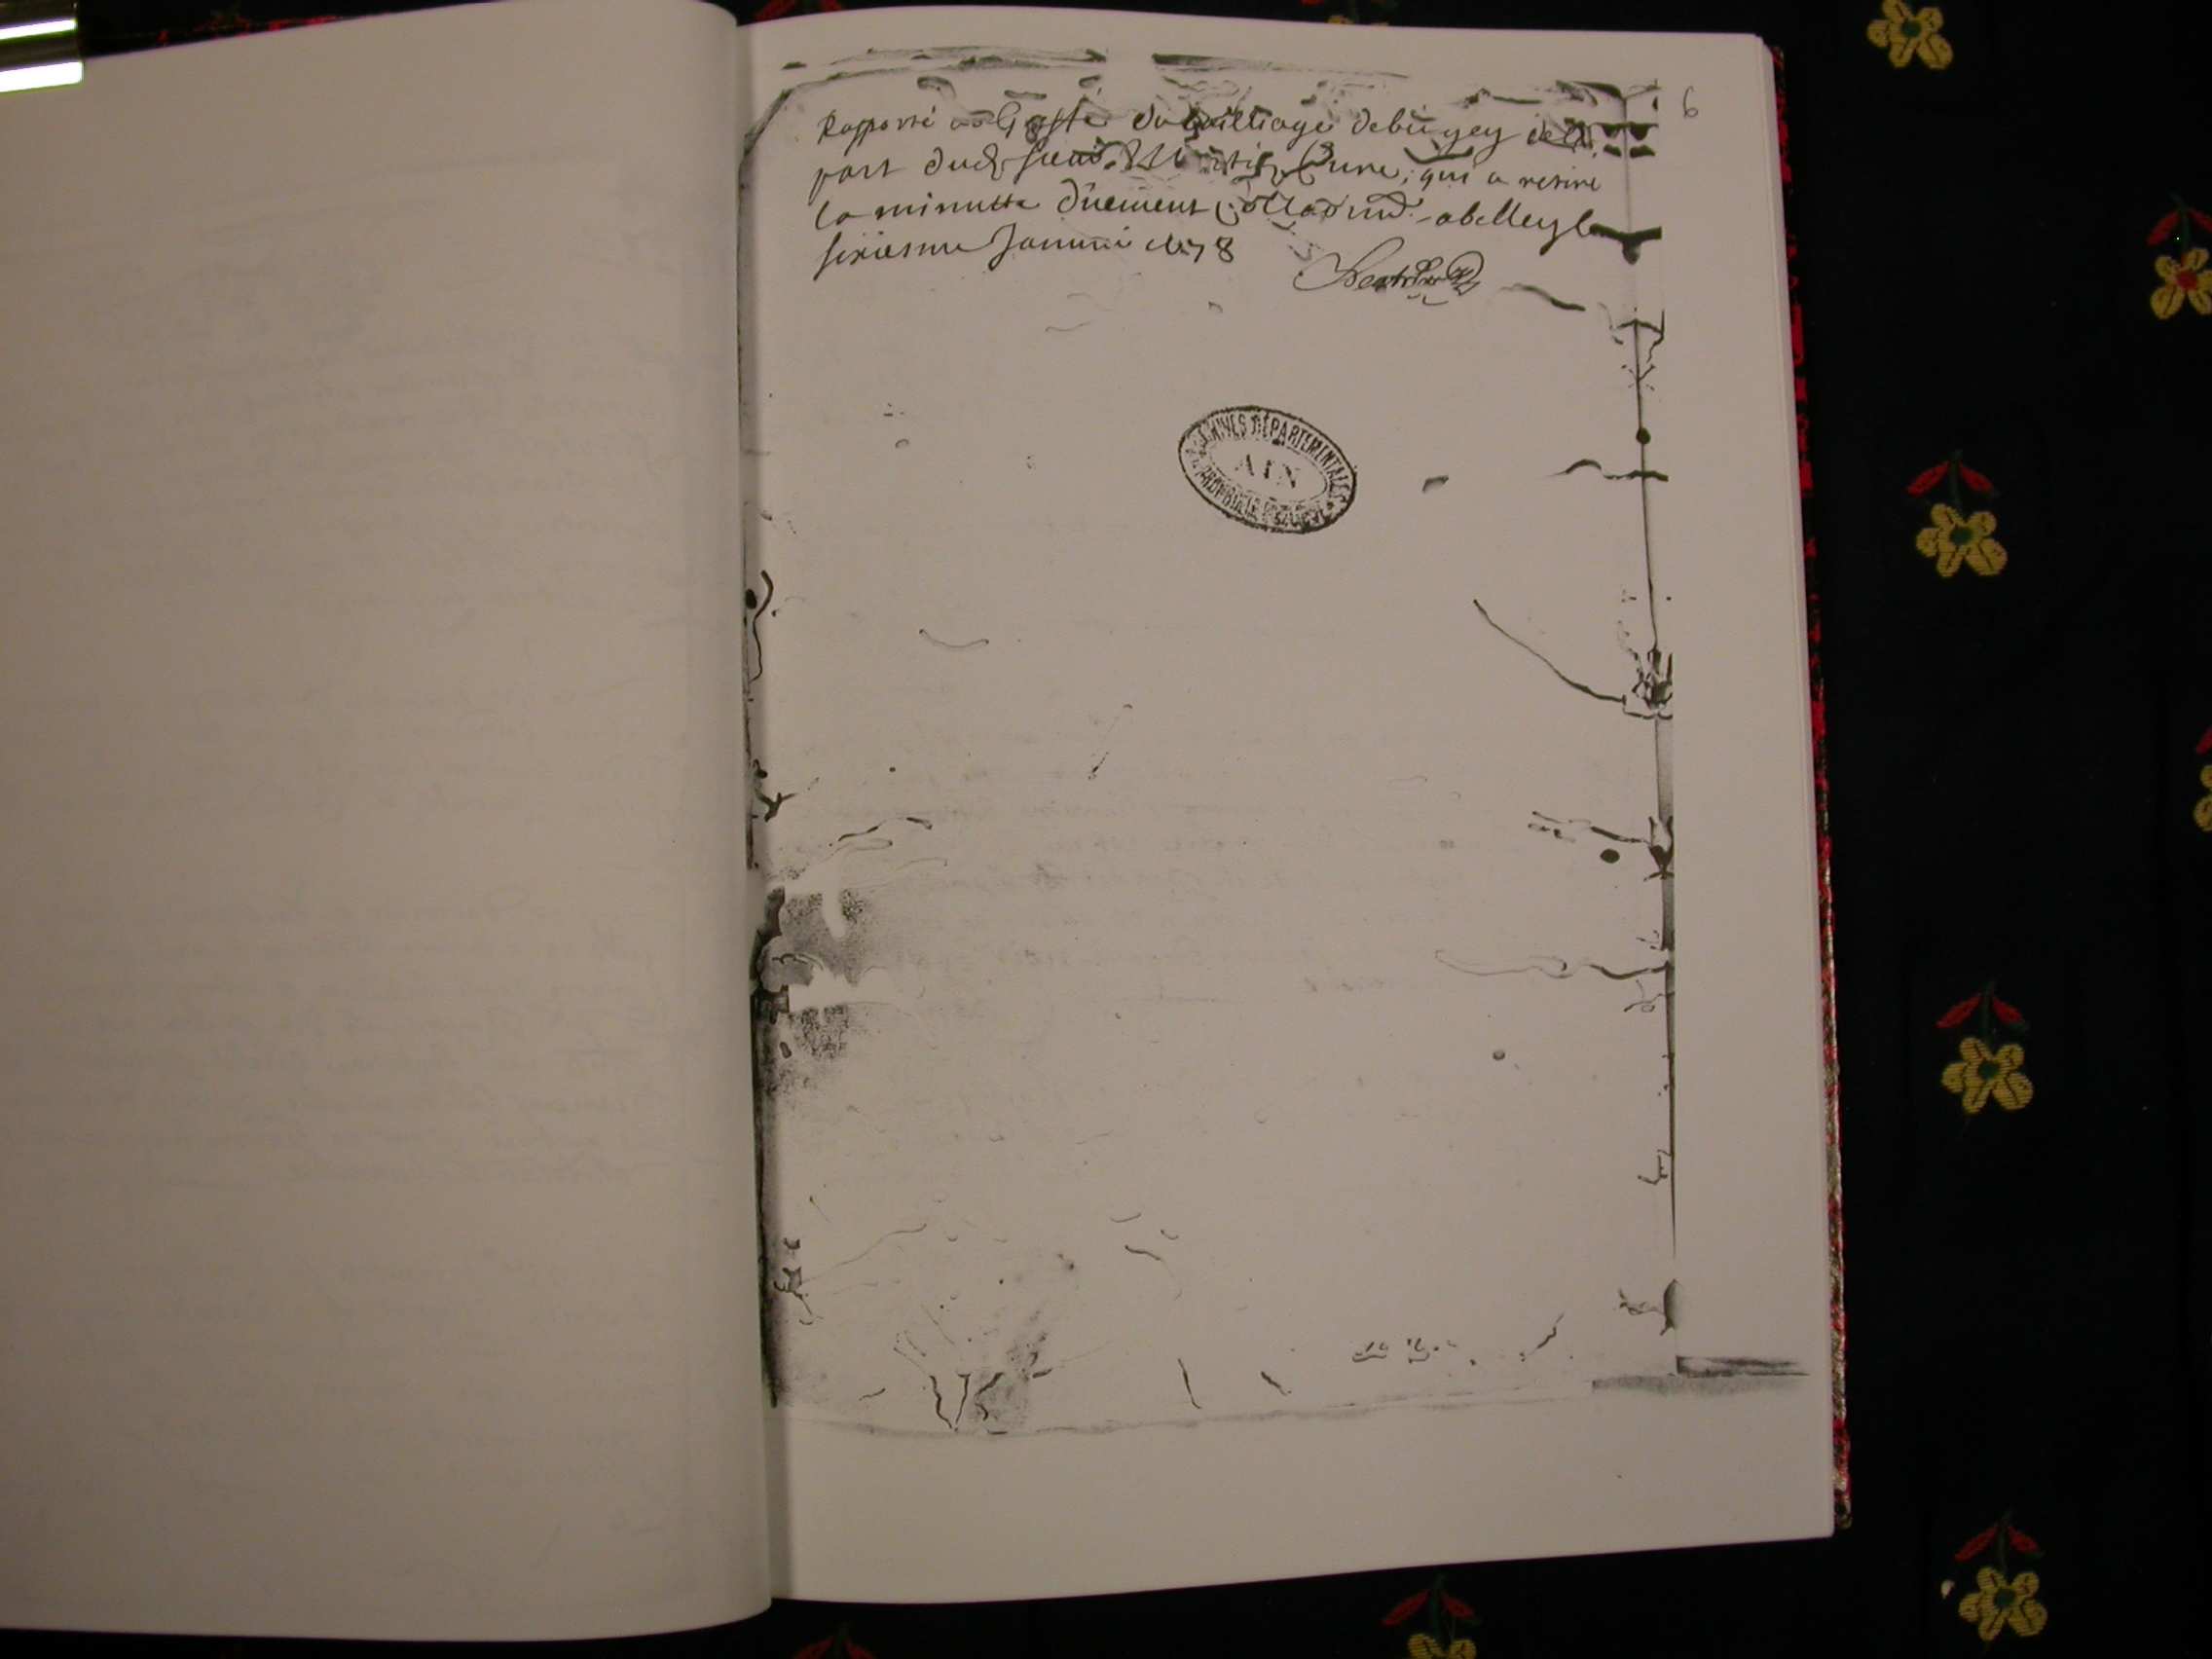 6
Rapporté au Greffe du bailliage de bugey de la
part dud. sieur Curé, qui a retiré
la minutte düement a belley le
sixiesme Janvier 78
ARCHIVES DÉPARTEMENTALES
AIN